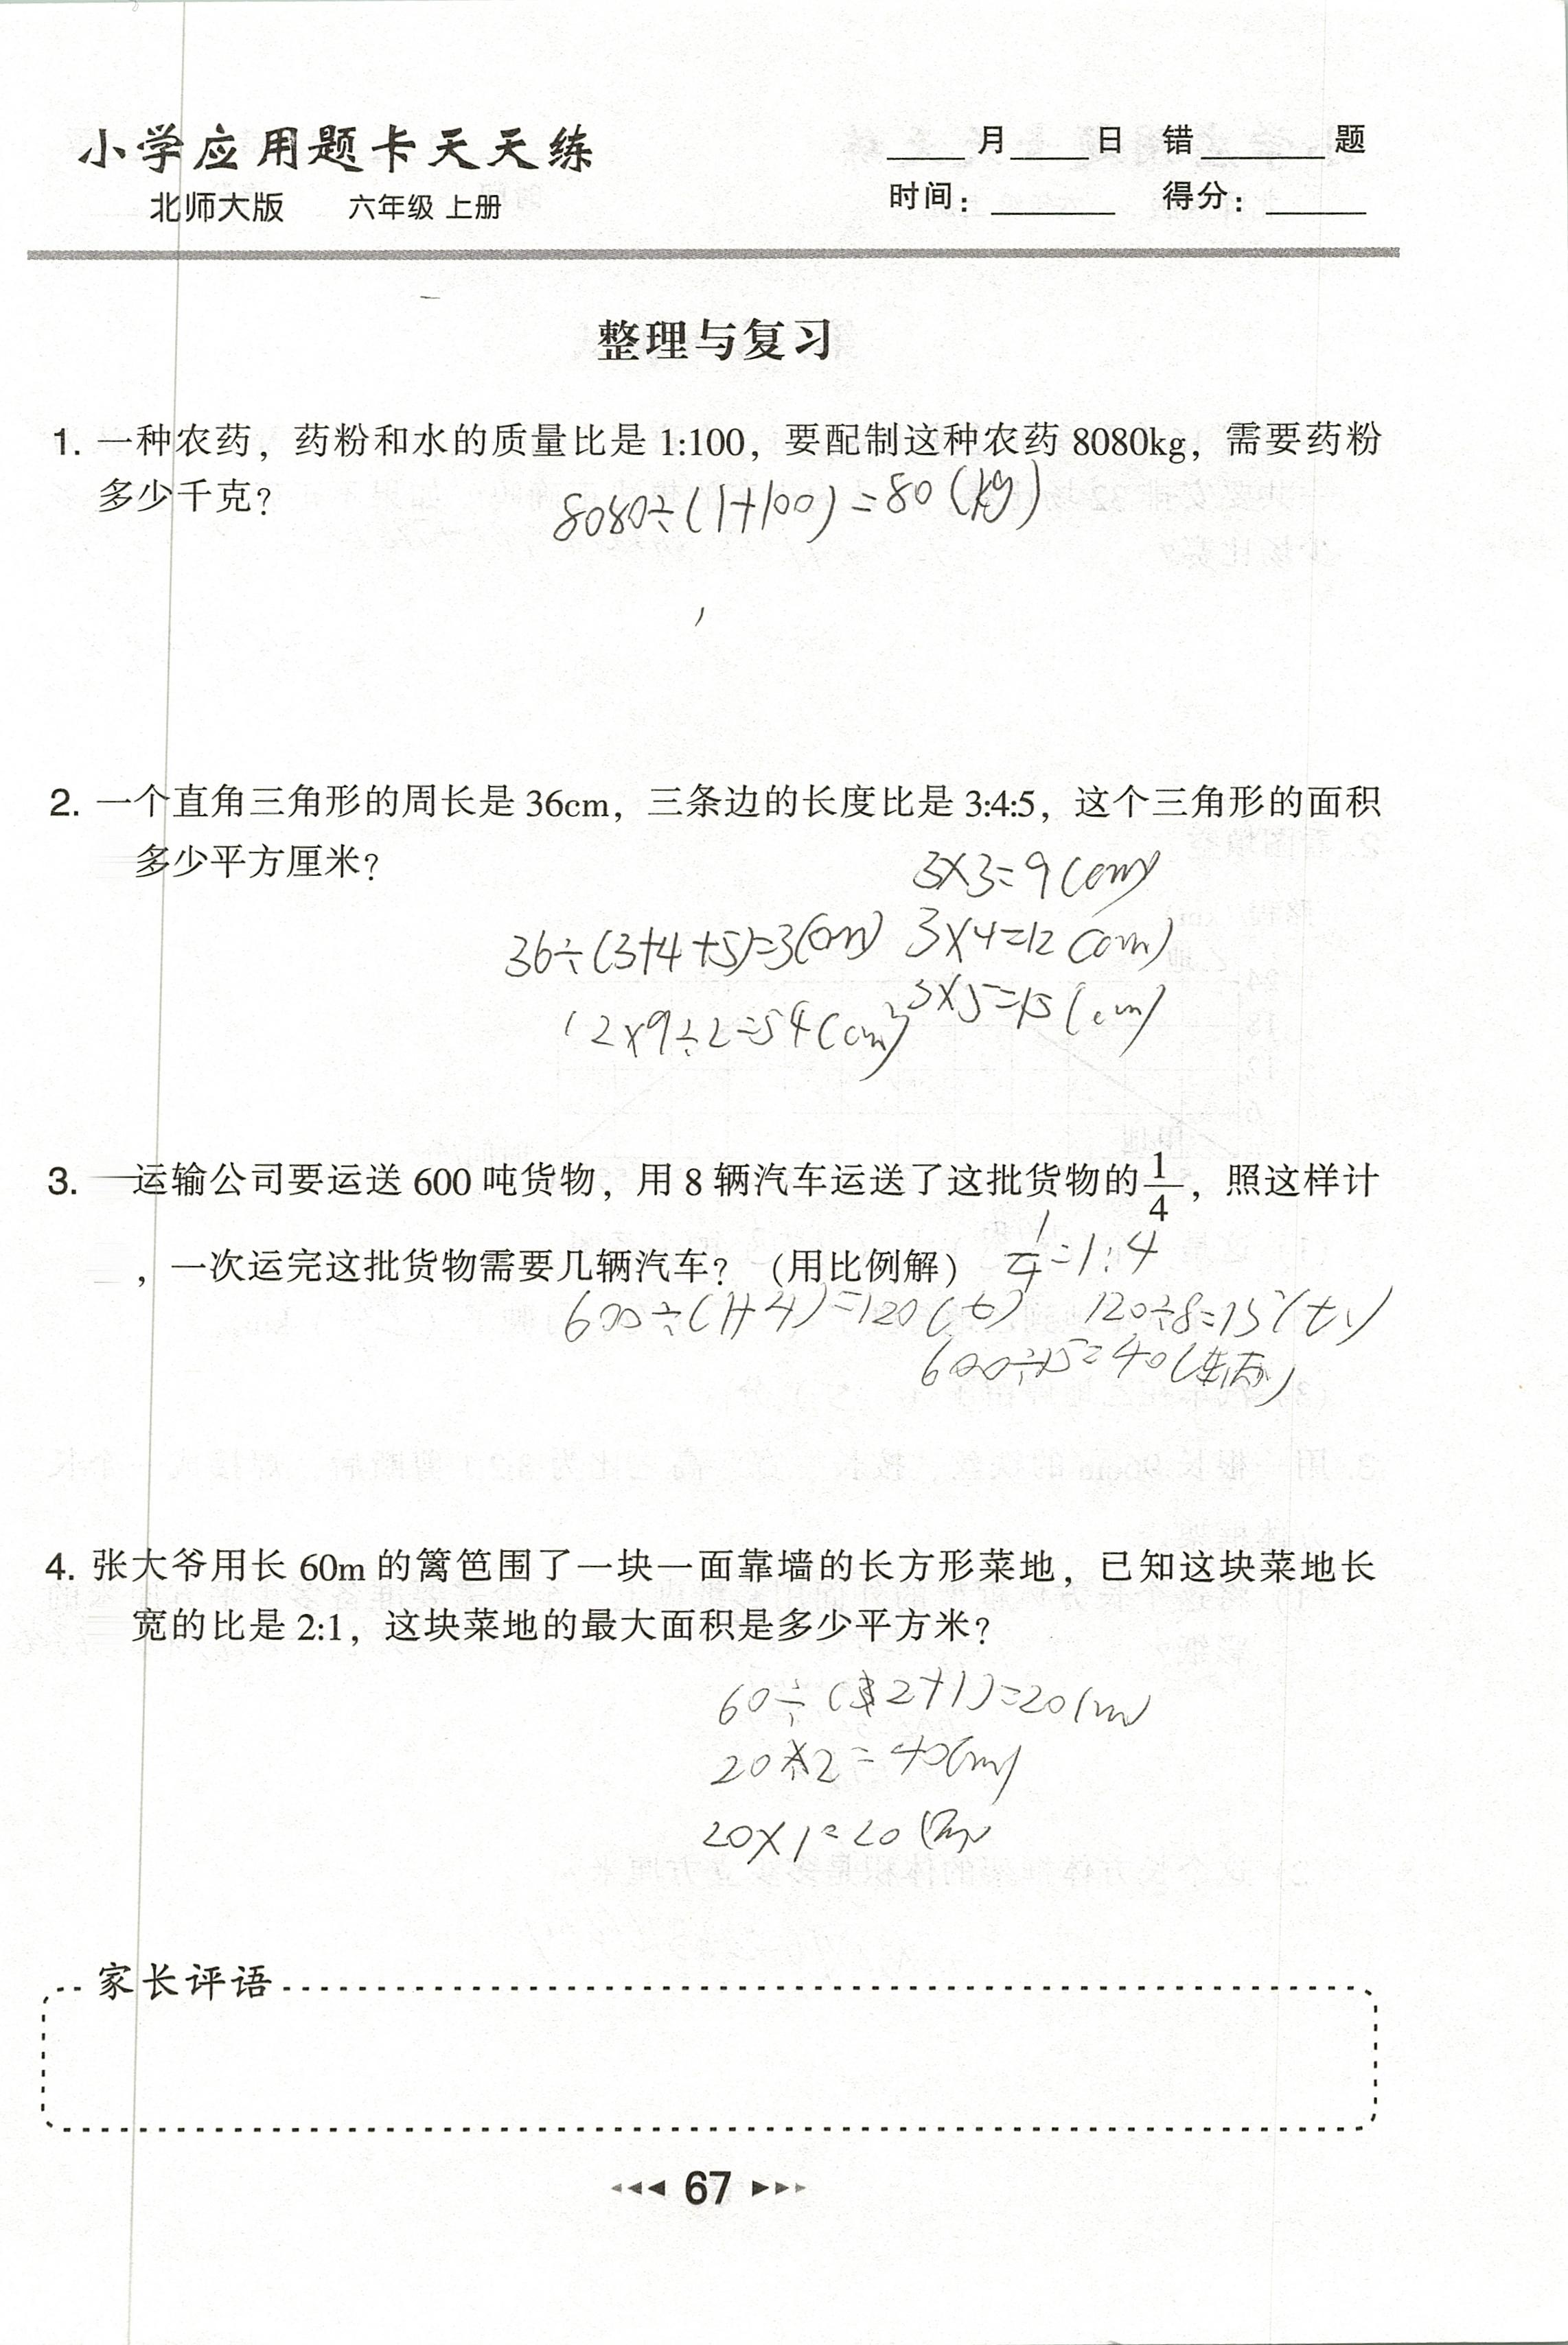 小学应用题卡天天练
北师大版 六年级 上册
____月____日 错______题
时间：______ 得分：_____
整理与复习
1. 一种农药，药粉和水的质量比是 1:100，要配制这种农药 8080kg，需要药粉
多少千克？
8080÷(1+100)=80(kg)
2. 一个直角三角形的周长是 36cm，三条边的长度比是 3:4:5，这个三角形的面积
多少平方厘米？
3×3=9(cm)
36÷(3+4+5)=3(cm) 3×4=12(cm)
3×5=15(cm)
12×9÷2=54(cm²)
3. 一运输公司要运送 600 吨货物，用 8 辆汽车运送了这批货物的1/4，照这样计
，一次运完这批货物需要几辆汽车？（用比例解）
1/4=1:4
600÷(1+4)=120(t) 120÷8=15(t)
600÷15=40(辆)
4. 张大爷用长 60m 的篱笆围了一块一面靠墙的长方形菜地，已知这块菜地长
宽的比是 2:1，这块菜地的最大面积是多少平方米？
60÷(2+1)=20(m)
20×2=40(m)
20×1=20(m)
家长评语
67